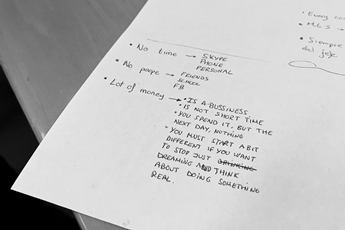 • No time → SKYPE
PHONE
PERSONAL
• No people → FRIENDS
SCHOOL
FB
• Lot of money → • IS A BUSSINESS
• IS NOT SHORT TIME
• YOU SPEND IT. BUT THE
NEXT DAY, NOTHING
• YOU MUST START A BIT
DIFFERENT IF YOU WANT
TO STOP JUST
DREAMING AND THINK
ABOUT DOING SOMETHING
REAL.
• Every
• M.L.S →
• Siempre
del jefe